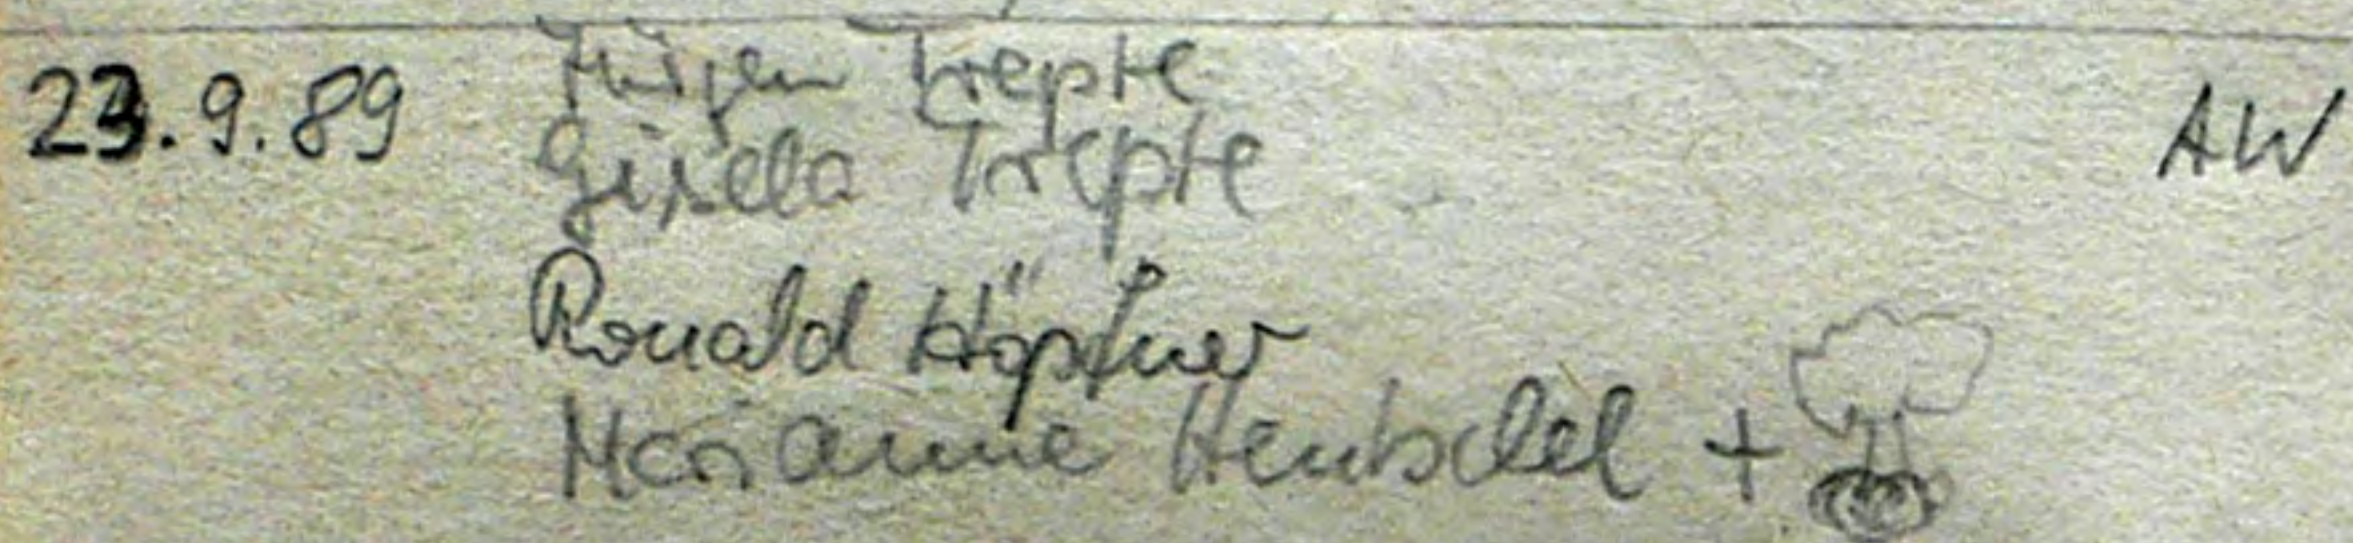 23.9.89 Jürgen Trepte AW
Gisela Trepte
Ronald Höpfner
Marianne Hentschel +